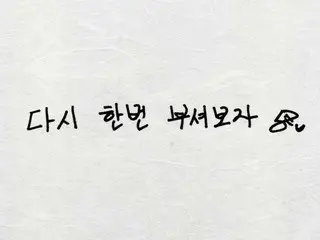 다시 한번 부셔보자